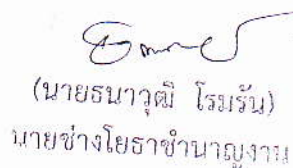 (นายธนาวุฒิ โรมรัน)
นายช่างโยธาชำนาญงาน